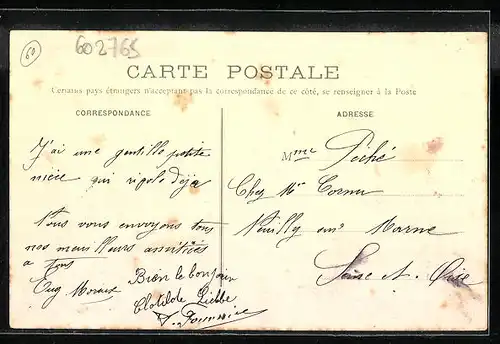 60
602765
CARTE POSTALE
Certains pays étrangers n'acceptant pas la correspondance de ce côté, se renseigner à la Poste
CORRESPONDANCE
J'ai une gentille petite
nièce qui rigole déja
Nous vous envoyons tous
nos meilleurs amitiés
a tous
Bien le bonjour
Clotilde
ADRESSE
Mme Péché
Chez Mr
Neuilly sur Marne
Seine et Oise